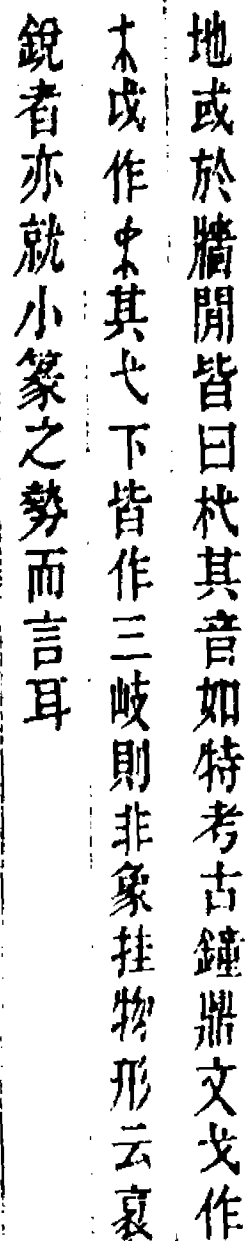 地或於牆閒皆曰杙其音如特考古鐘鼎文戈作
戊作其弋下皆作三岐則非象挂物形云衺
銳者亦就小篆之勢而言耳